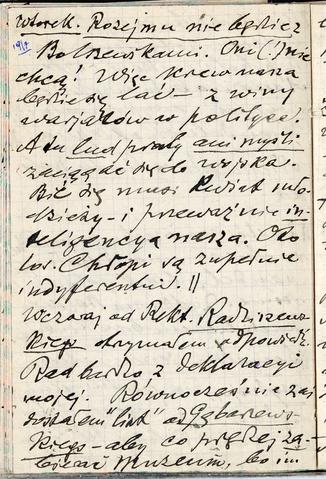 wtorek. Rozejmu nie będzie z
Bolszewikami. Oni (!) nie
chcą! Więc krew nasza
będzie się lać – z winy
warjatów w polityce!
A tu lud prosty ani myśli
zaciągać się do wojska.
Bić się musi kwiat mło-
dzieży – i przeważnie in-
teligencya nasza. Oto
los. Chłopi są zupełnie
indyferentni. ||
Wczoraj od Rekt. Radziszew-
skiego otrzymałem odpowiedź.
Rad bardzo z deklaracyi
mojej. Równocześnie zaś
dostałem "list" od Gębarzews-
kiego – aby co prędzej za-
bierać Muzeum, bo im